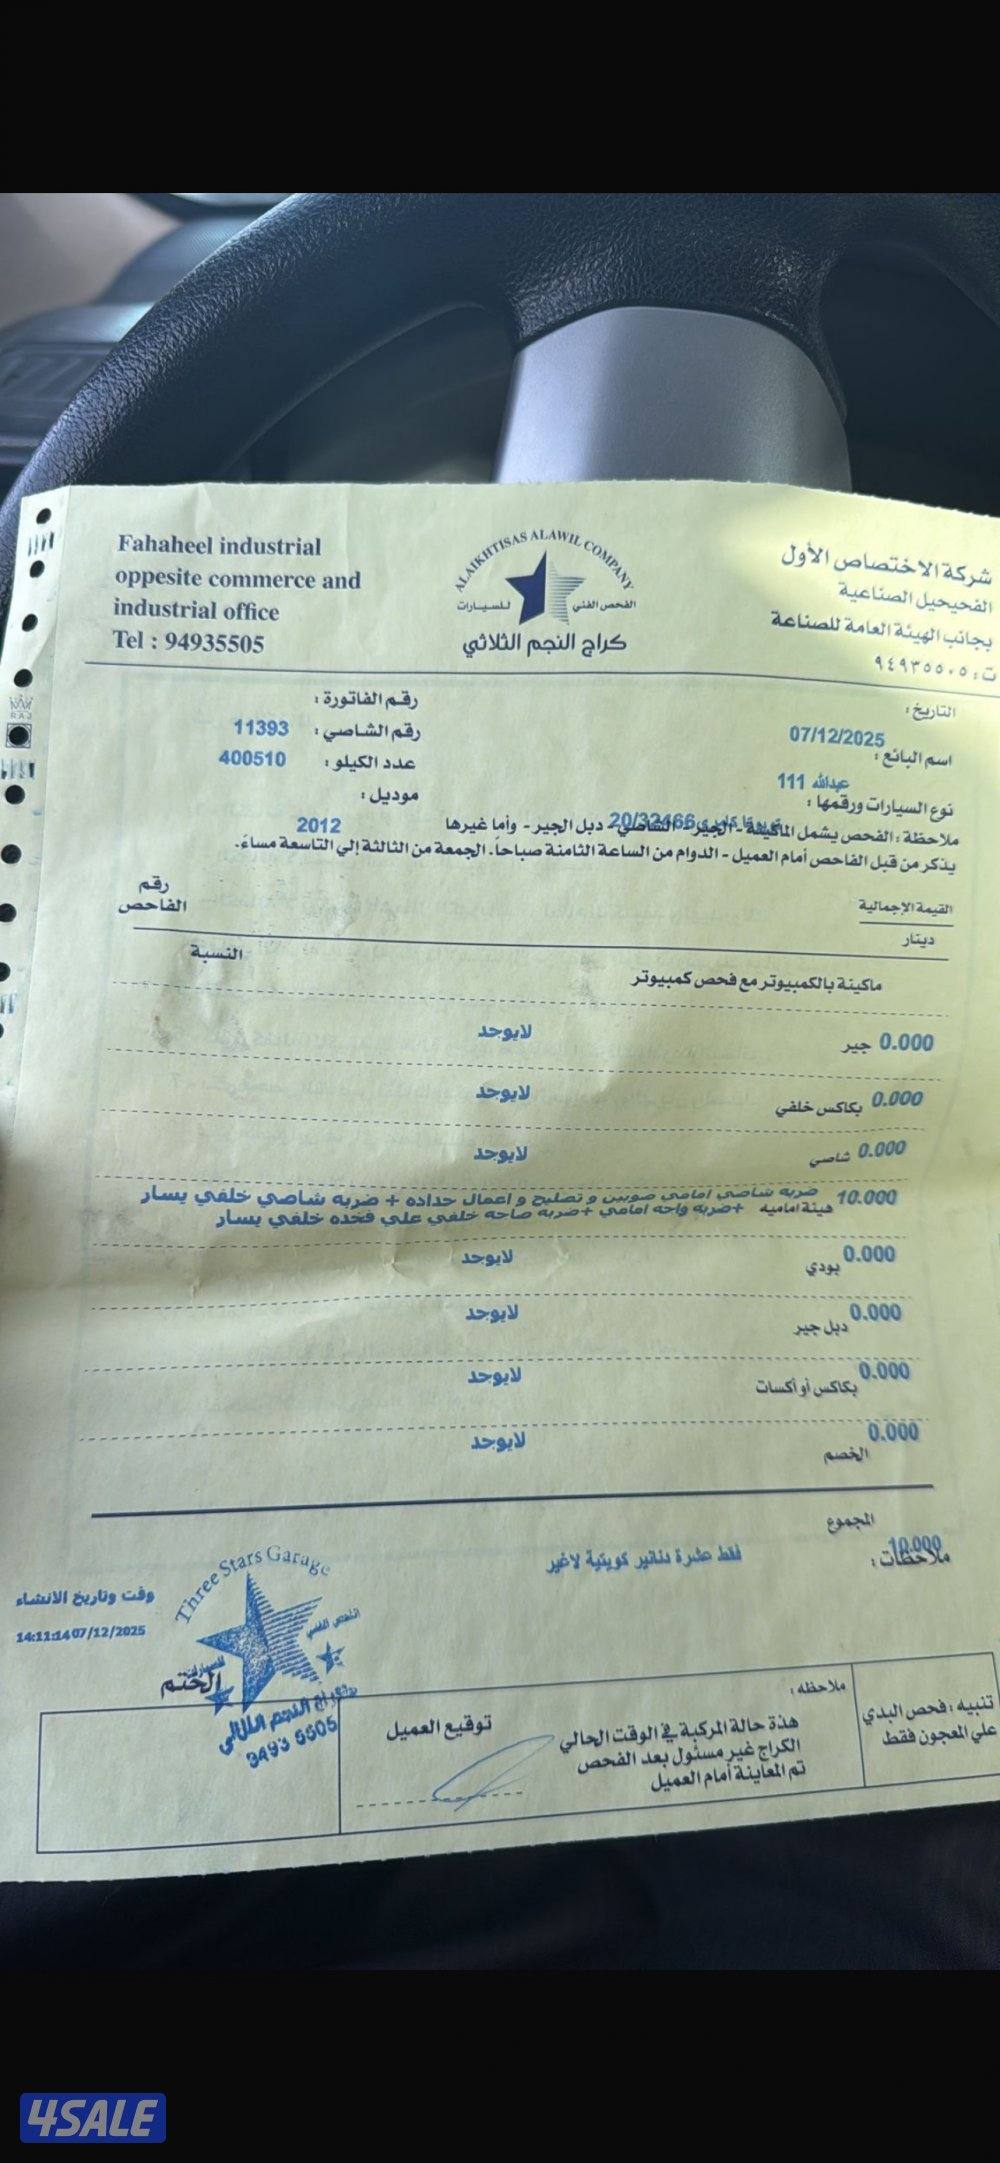 Fahaheel industrial
oppesite commerce and
industrial office
Tel : 94935505
ALAIKHTISAS ALAWIL COMPANY
الفحص الفني للسيارات
كراج النجم الثلاثي
شركة الاختصاص الأول
الفحيحيل الصناعية
بجانب الهيئة العامة للصناعة
ت: ٩٤٩٣٥٥٠٥
RAJ
التاريخ:
07/12/2025
رقم الفاتورة:
رقم الشاصي: 11393
اسم البائع:
عبدالله 111
عدد الكيلو: 400510
نوع السيارات ورقمها:
20/32466
موديل:
2012
ملاحظة: الفحص يشمل الماكينة - الجير - الشاصي - دبل الجير - وأما غيرها
يذكر من قبل الفاحص أمام العميل - الدوام من الساعة الثامنة صباحاً. الجمعة من الثالثة إلي التاسعة مساءً.
القيمة الإجمالية
دينار
رقم
الفاحص
النسبة
ماكينة بالكمبيوتر مع فحص كمبيوتر
0.000 جير لايوجد
0.000 بكاكس خلفي لايوجد
0.000 شاصي لايوجد
10.000 هيئة امامية ضربه شاصي امامي صوبين و تصليح و اعمال حداده + ضربه شاصي خلفي يسار
+ضربه واجه امامي +ضربه صاجه خلفي علي فخده خلفي يسار
0.000 بودي لايوجد
0.000 دبل جير لايوجد
0.000 بكاكس أو أكسات لايوجد
0.000 الخصم لايوجد
المجموع
10.000
ملاحظات:
فقط عشرة دنانير كويتية لاغير
وقت وتاريخ الانشاء
14:11:14 07/12/2025
Three Stars Garage
الفحص الفني
للسيارات
الختم
كراج النجم الثلاثي
9493 5505
تنبيه: فحص البدي
علي المعجون فقط
ملاحظه:
هذة حالة المركبة في الوقت الحالي
الكراج غير مسئول بعد الفحص
تم المعاينة أمام العميل
توقيع العميل
4SALE